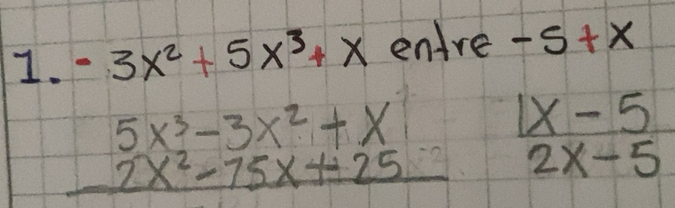 1. - 3x² + 5x³ + x entre - 5 + x
5x³ - 3x² + x 1x - 5
2x² - 75x + 25 2x - 5